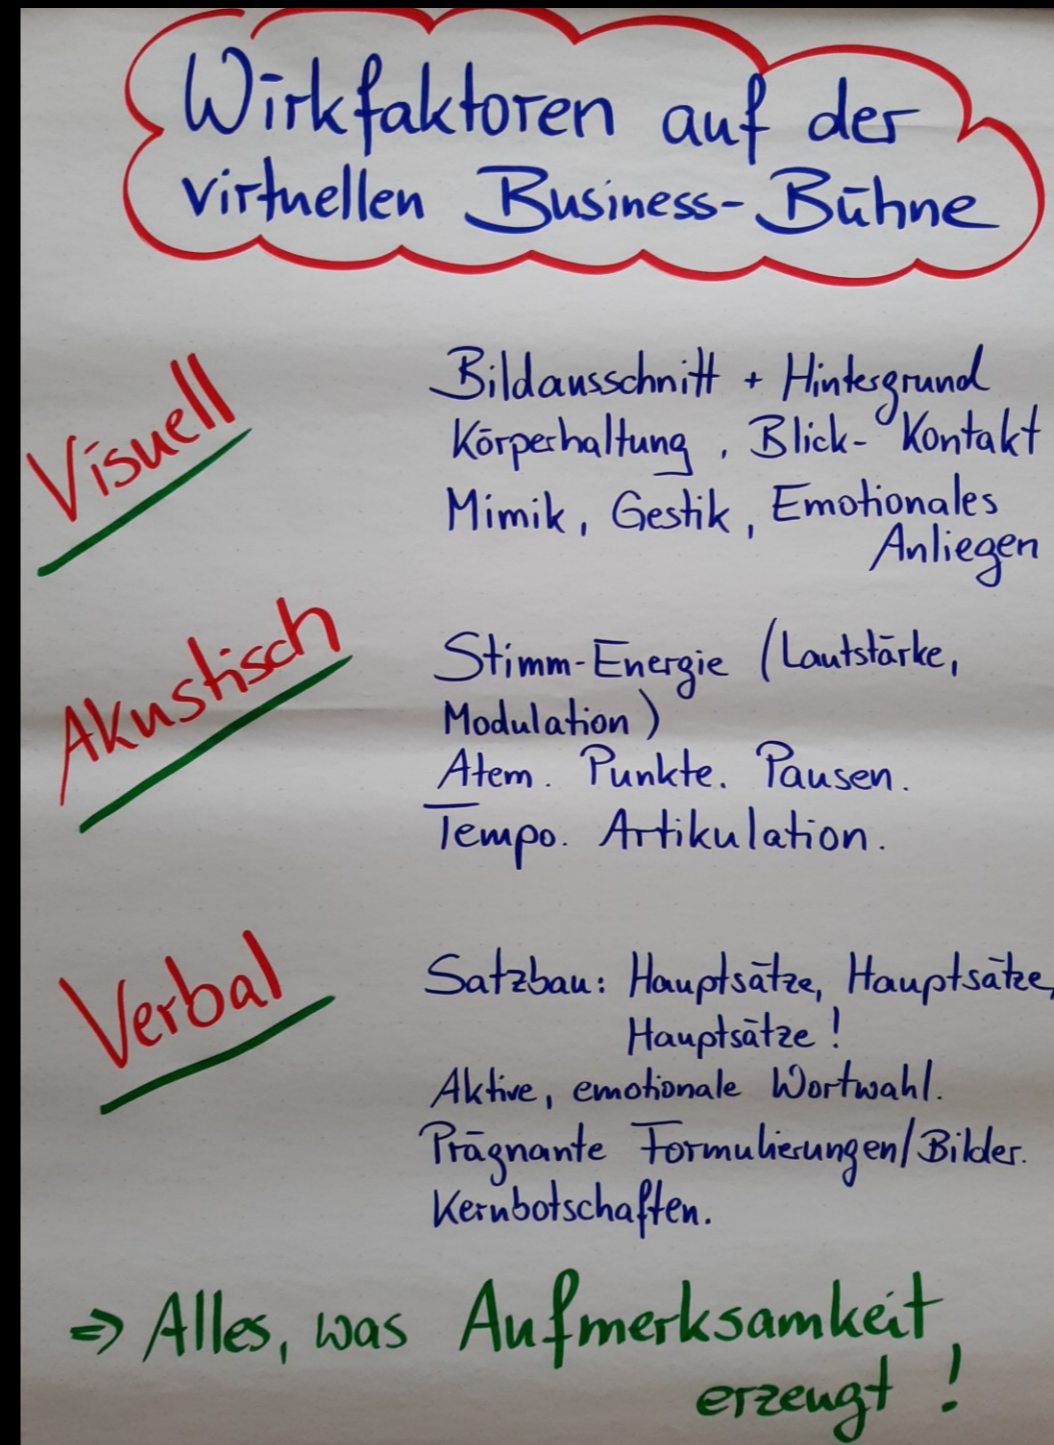 Wirkfaktoren auf der
virtuellen Business-Bühne
Visuell
Bildausschnitt + Hintergrund
Körperhaltung, Blick-Kontakt
Mimik, Gestik, Emotionales
Anliegen
Akustisch
Stimm-Energie (Lautstärke,
Modulation)
Atem. Punkte. Pausen.
Tempo. Artikulation.
Verbal
Satzbau: Hauptsätze, Hauptsätze,
Hauptsätze!
Aktive, emotionale Wortwahl.
Prägnante Formulierungen/Bilder.
Kernbotschaften.
⇒ Alles, was Aufmerksamkeit
erzeugt!